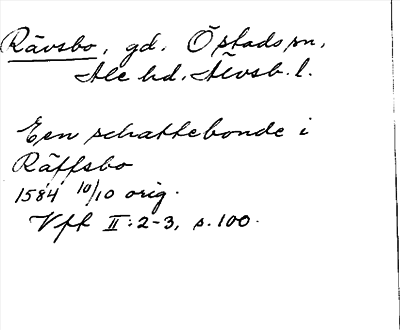 Rävsbo, gd. Östads sn,
Ale hd, Älvsb. l.
Een schattebonde i
Räffsbo
1584 10/10 orig.
Vfk II:2-3, s. 100.